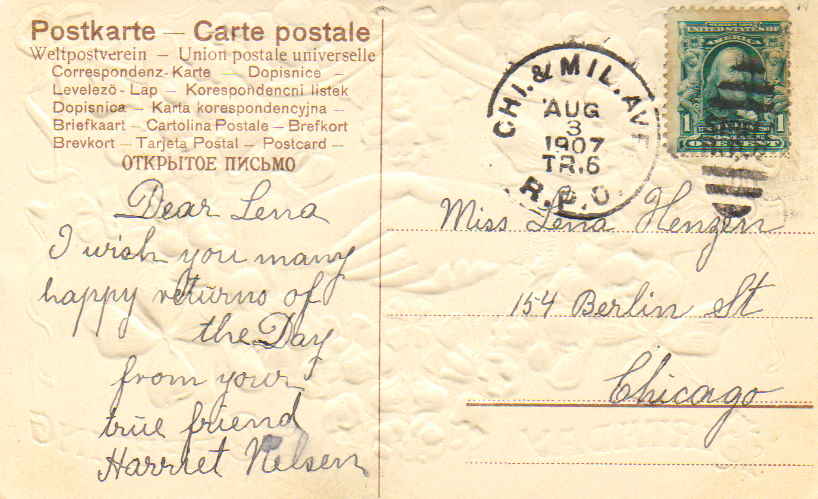 Postkarte — Carte postale
Weltpostverein — Union postale universelle
Correspondenz-Karte — Dopisnice —
Levelező-Lap — Korespondencni listek
Dopisnica — Karta korespondencyjna —
Briefkaart — Cartolina Postale — Brefkort
Brevkort — Tarjeta Postal — Postcard —
ОТКРЫТОЕ ПИСЬМО
Dear Lena
I wish you many
happy returns of
the Day
from your
true friend
Harriet Nelsen
CHI. & MIL. AVE
AUG
3
1907
TR.6
R.P.O.
UNITED STATES OF
AMERICA
1 1
ONE CENT
Miss Lena Henzen
154 Berlin St
Chicago